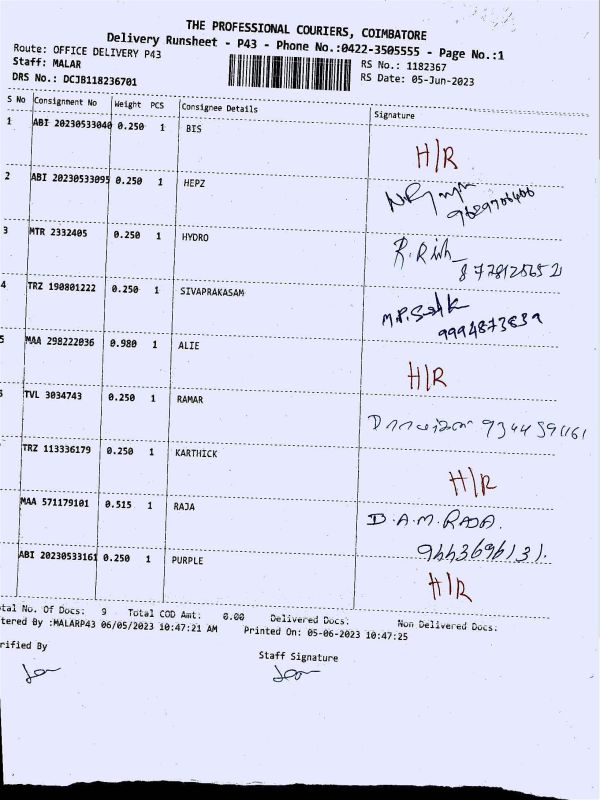 THE PROFESSIONAL COURIERS, COIMBATORE
Delivery Runsheet - P43 - Phone No.:0422-3505555 - Page No.:1
Route: OFFICE DELIVERY P43
Staff: MALAR
RS No.: 1182367
DRS No.: DCJB118236701
RS Date: 05-Jun-2023
S No Consignment No Weight PCS Consignee Details Signature
1 ABI 20230533040 0.250 1 BIS H/R
2 ABI 20230533095 0.250 1 HEPZ
3 MTR 2332405 0.250 1 HYDRO R.Rish
8778125652
4 TRZ 190801222 0.250 1 SIVAPRAKASAM
9994873839
5 MAA 298222036 0.980 1 ALIE H/R
TVL 3034743 0.250 1 RAMAR 9344591161
TRZ 113336179 0.250 1 KARTHICK H/R
MAA 571179101 0.515 1 RAJA D.A.M.RAJA.
9443696131.
ABI 20230533161 0.250 1 PURPLE H/R
tal No. Of Docs: 9 Total COD Amt: 0.00 Delivered Docs: Non Delivered Docs:
tered By :MALARP43 06/05/2023 10:47:21 AM Printed On: 05-06-2023 10:47:25
rified By Staff Signature